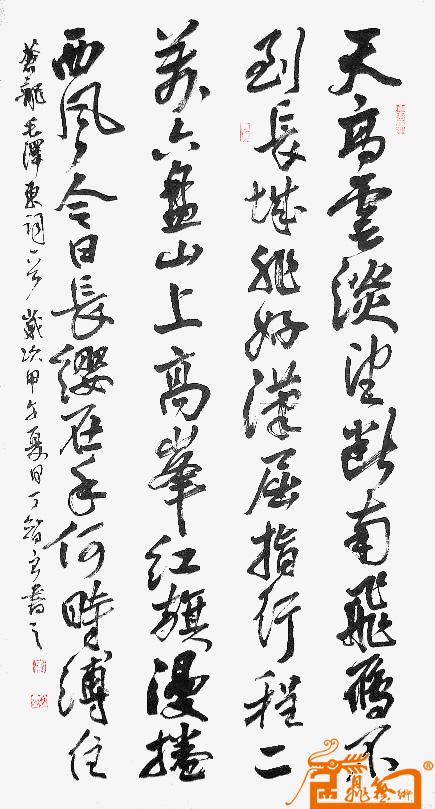 天高雲淡望斷南飛雁不
到長城非好漢屈指行程二
萬六盤山上高峯紅旗漫捲
西風今日長纓在手何時縛住
蒼龍毛澤東詞 歲次甲午夏日丁智書之